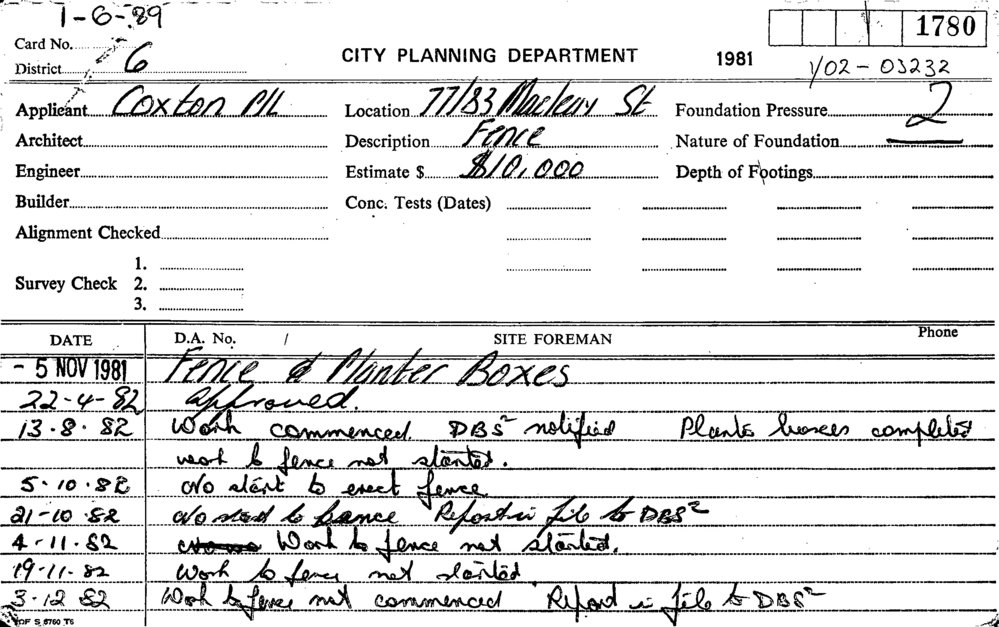 1-6-89
1780
Card No.
District 6
CITY PLANNING DEPARTMENT 1981
1/02-03232
Applicant Coxton P/L Location 77/83 Macleay St Foundation Pressure 2
Architect Description Fence Nature of Foundation
Engineer Estimate $ $10,000 Depth of Footings
Builder Conc. Tests (Dates)
Alignment Checked
1.
Survey Check 2.
3.
DATE D.A. No. / SITE FOREMAN Phone
- 5 NOV 1981 Fence & Planter Boxes
22-4-82 approved.
13.8.82 Work commenced. DBS² notified Plants boxes completed
work to fence not started.
5.10.82 No start to erect fence
21-10.82 No start to fence Report in file to DBS²
4-11.82 Work to fence not started.
19-11-82 Work to fence not started.
3-12 82 Work to fence not commenced Report in file to DBS²